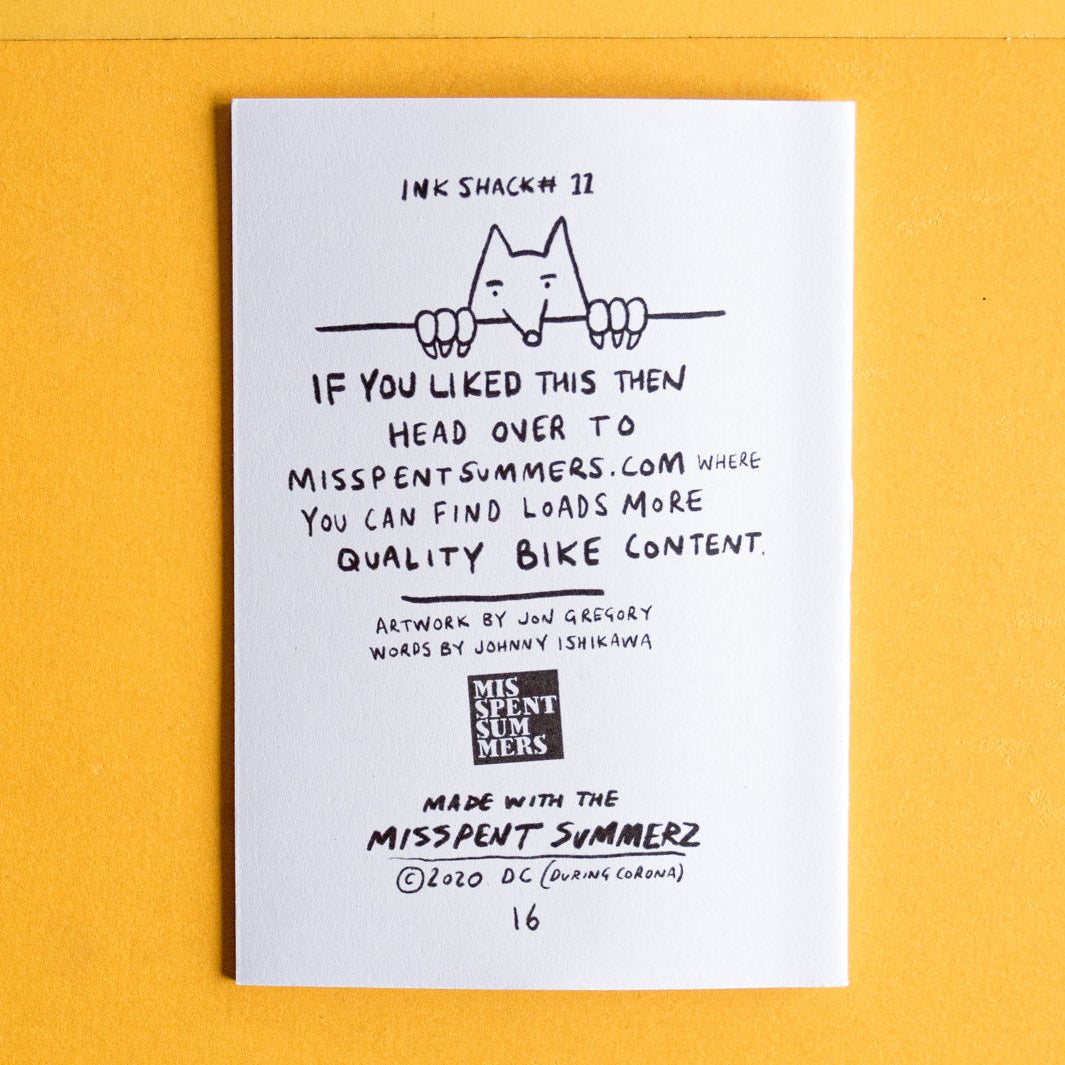 INK SHACK# 11
IF YOU LIKED THIS THEN
HEAD OVER TO
MISSPENTSUMMERS.COM WHERE
YOU CAN FIND LOADS MORE
QUALITY BIKE CONTENT.
ARTWORK BY JON GREGORY
WORDS BY JOHNNY ISHIKAWA
MIS
SPENT
SUM
MERS
MADE WITH THE
MISSPENT SUMMERZ
©2020 DC (DURING CORONA)
16